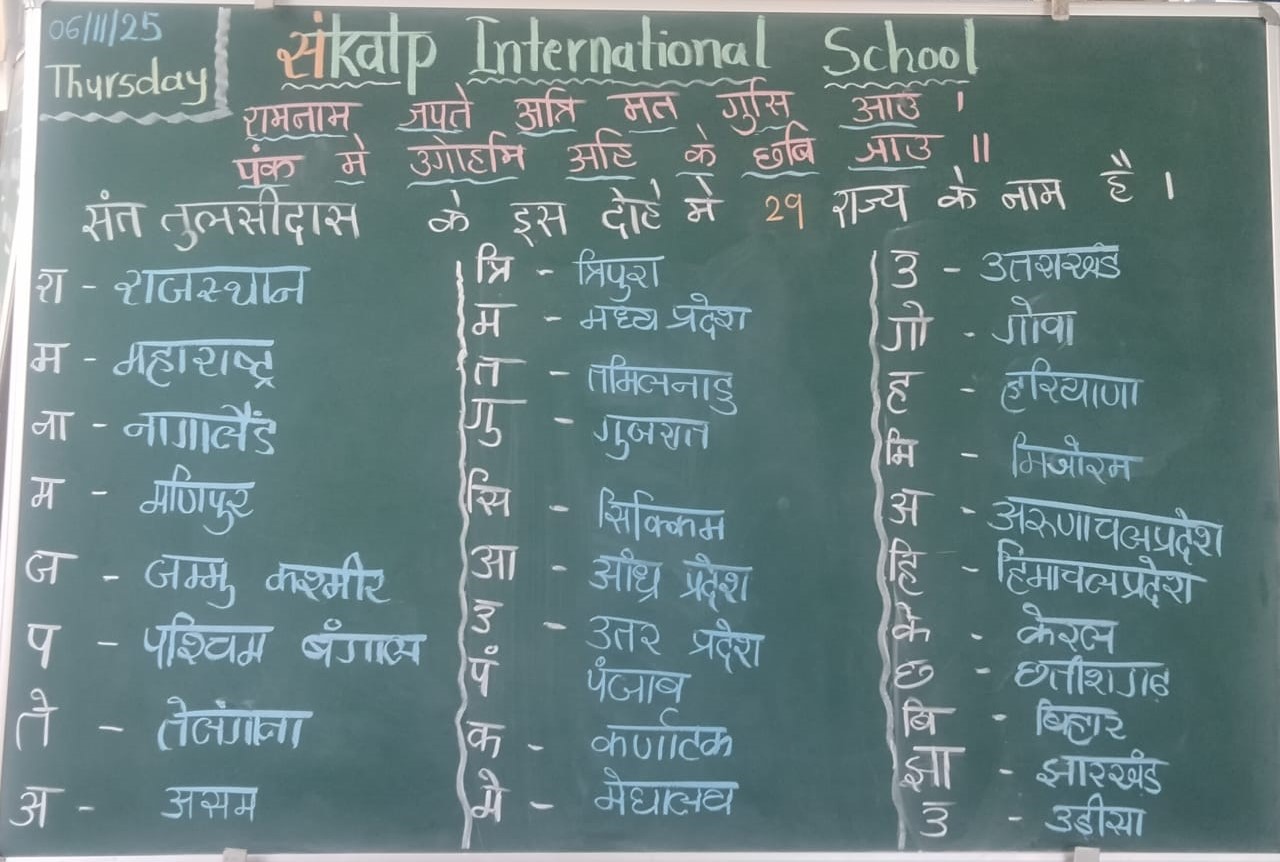 06/11/25
Thursday
संkalp International School
रामनाम जपते अत्रि मत गुसि आउ ।
पंक मे उगोहमि अहि के छबि जाउ ॥
संत तुलसीदास के इस दोहे मे 29 राज्य के नाम है ।
रा - राजस्थान
म - महाराष्ट्र
ना - नागालैंड
म - मणिपुर
ज - जम्मु कश्मीर
प - पश्चिम बंगाल
ते - तेलंगाना
अ - असम
त्रि - त्रिपुरा
म - मध्य प्रदेश
त - तमिलनाडु
गु - गुजरात
सि - सिक्किम
आ - आंध्र प्रदेश
उ - उतर प्रदेश
पं पंजाब
क - कर्णाटक
मे - मेघालय
उ - उतराखंड
गो - गोवा
ह - हरियाणा
मि - मिजोरम
अ - अरुणाचलप्रदेश
हि - हिमाचलप्रदेश
के - केरल
छ - छतीशगढ
बि - बिहार
झा - झारखंड
उ - उडीसा